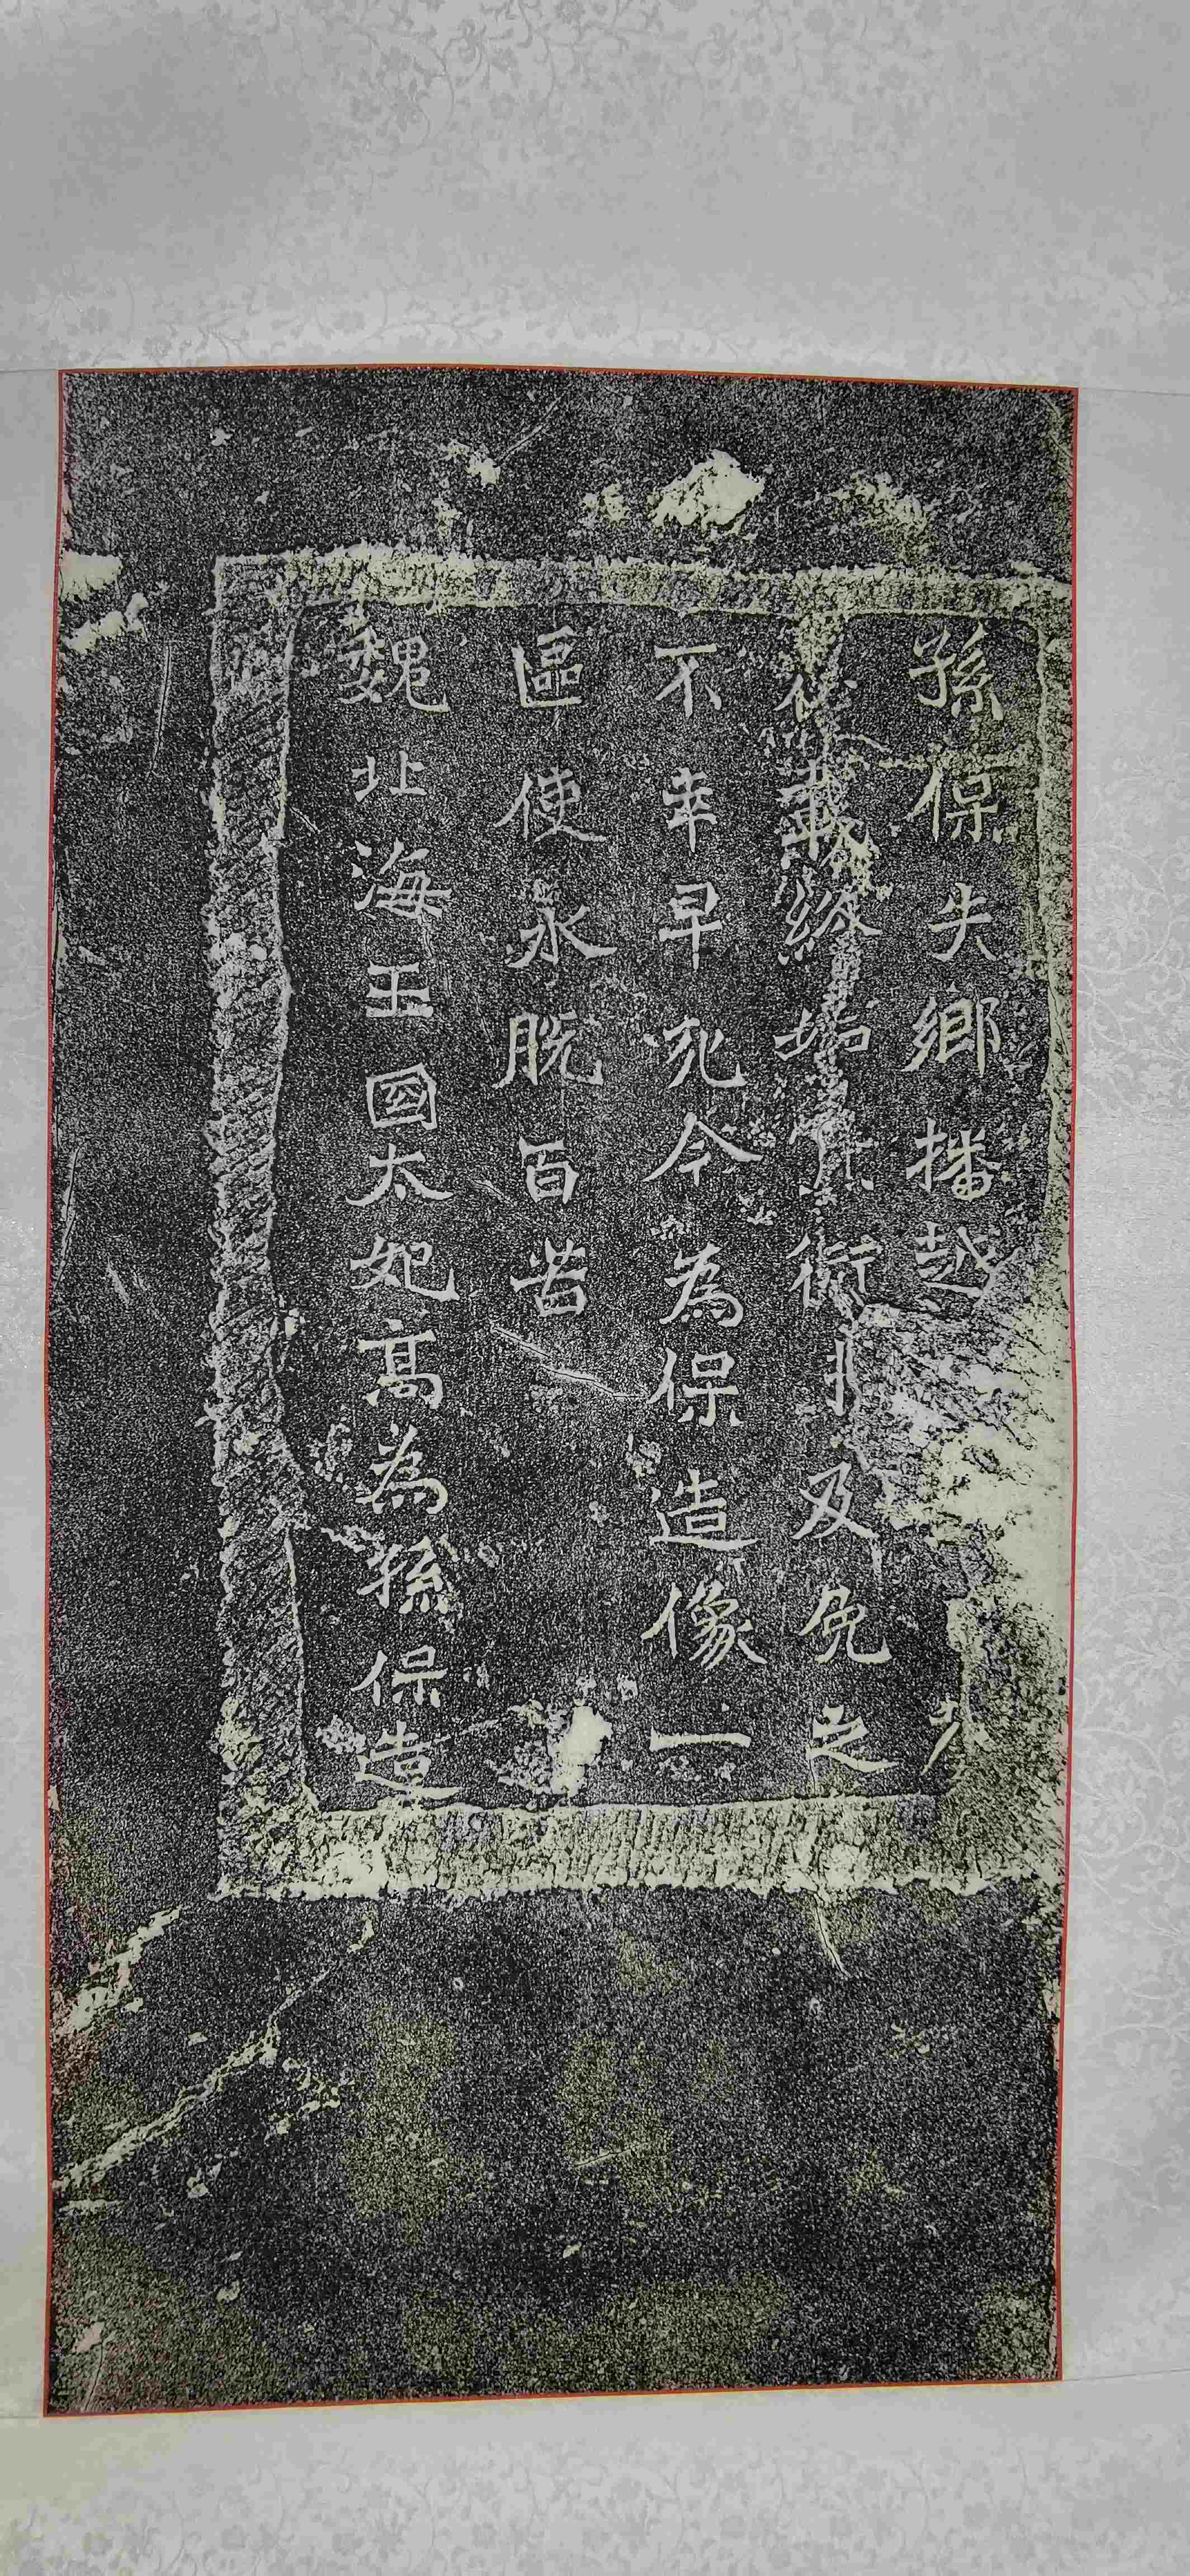 孫保失鄉播越
終始衍及免之
不幸早死今為保造像一
區使永脫百苦
魏北海王國太妃高為孫保造